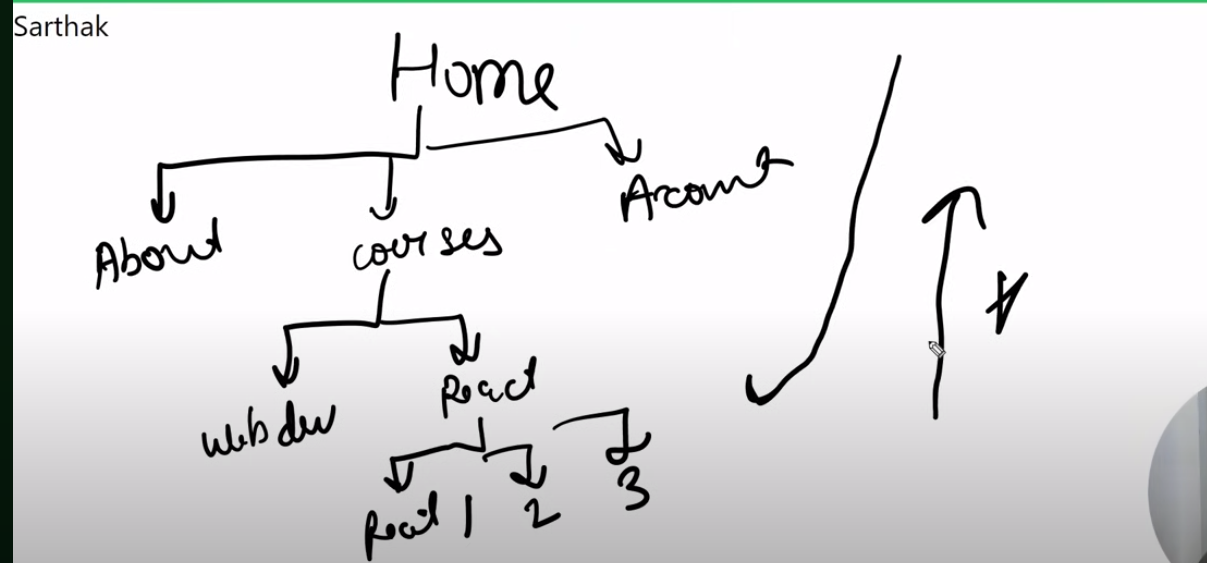 Sarthak
Home
About courses Account
web dev React
React 1 2 3